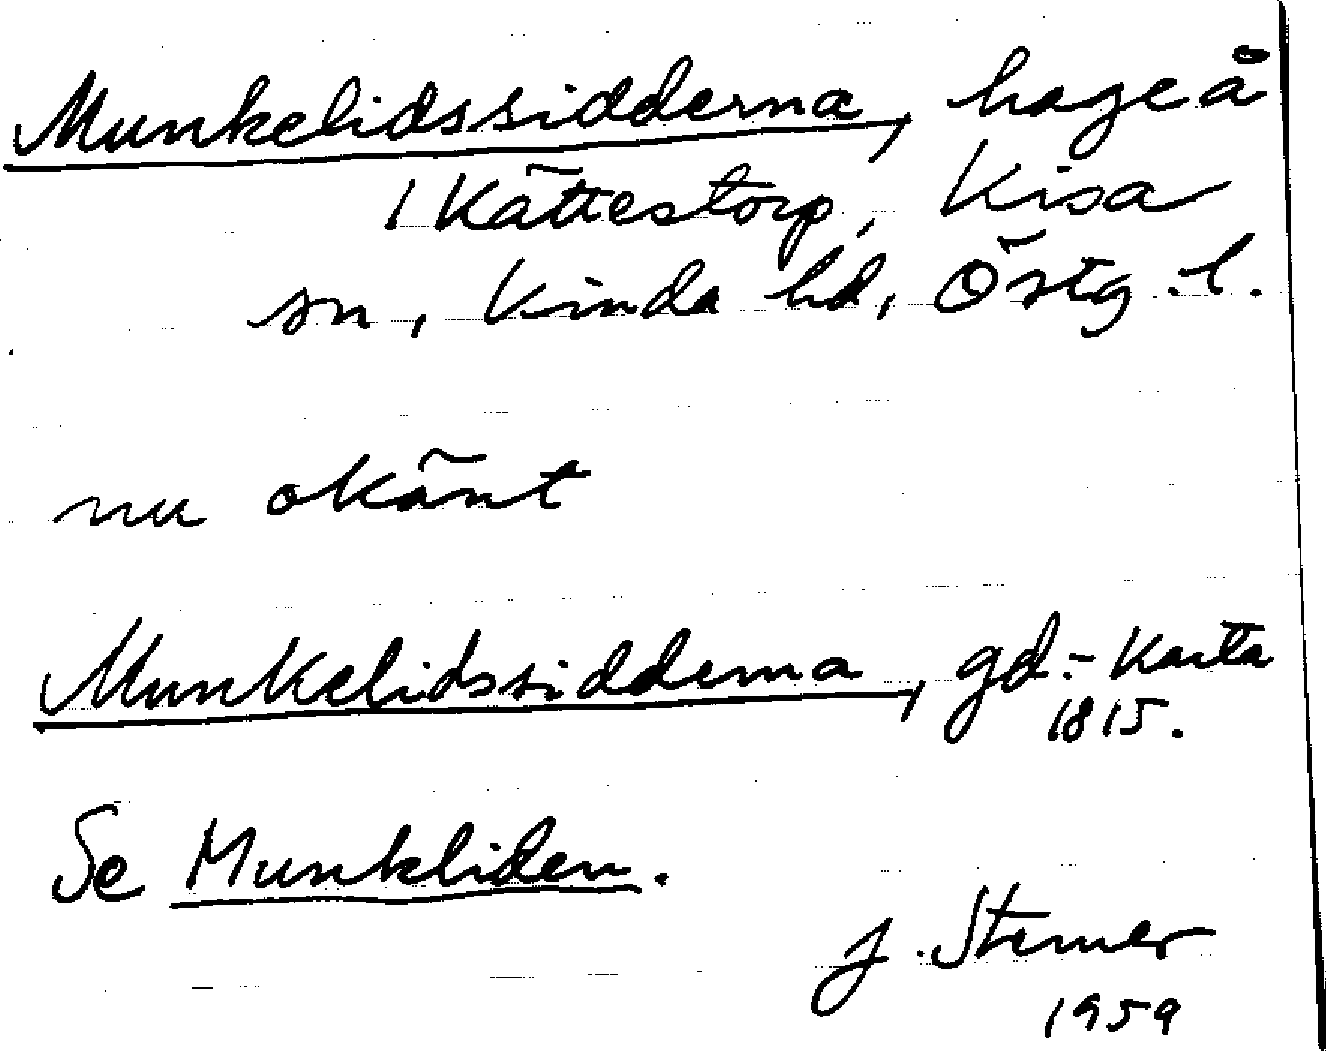 Munkelidssidderna, hage å
i Kättestorp, Kisa
sn, Kinda hd, Östg. l.
nu okänt
Munkelidssidderna, gd.- karta
1815.
Se Munkliden.
J. Sterner
1959